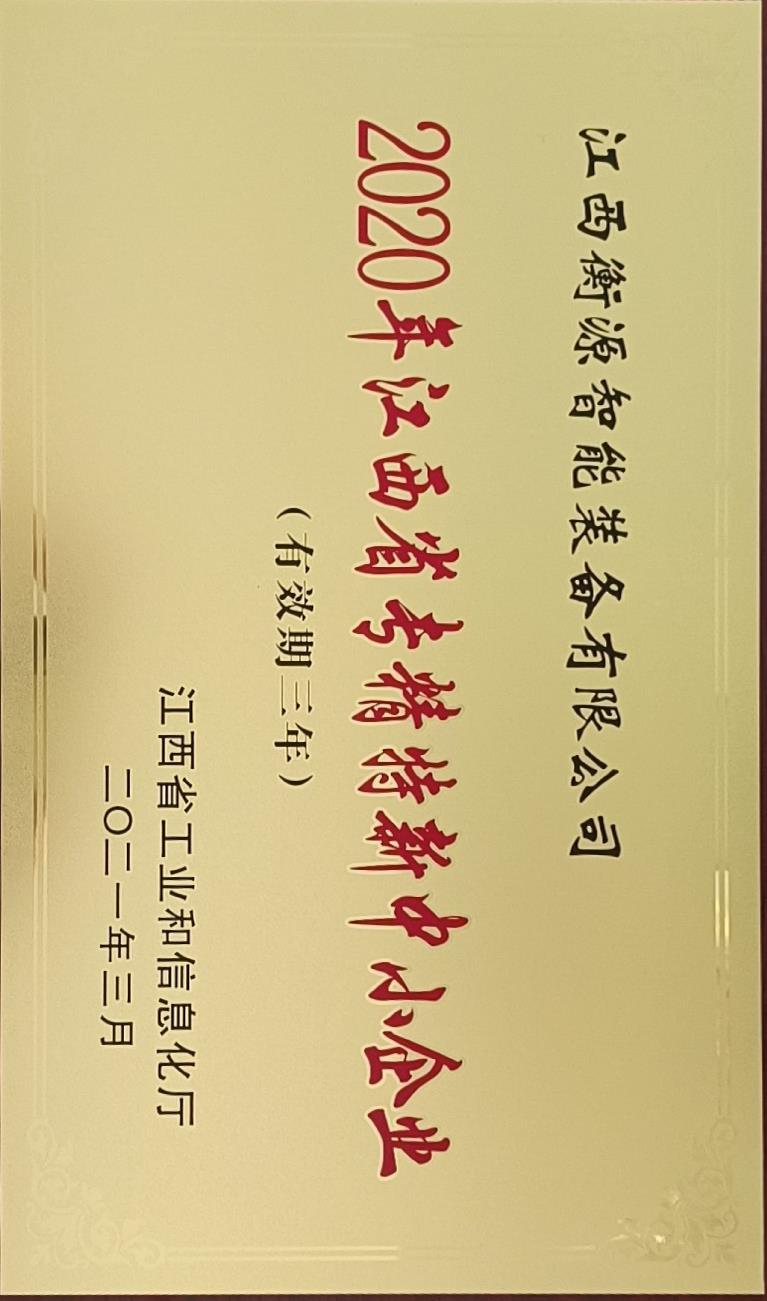 江西衡源智能装备有限公司
2020年江西省专精特新中小企业
（有效期三年）
江西省工业和信息化厅
二〇二一年三月